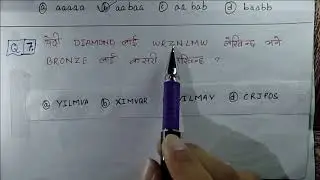 ⓐ aaaaa ⓑ aabaa ⓒ aabab ⓓ baabb
Q 7. यदि DIAMOND लाई WRZNLMW लेखिन्छ भने
BRONZE लाई कसरी लेखिन्छ ?
ⓐ YILMVA ⓑ XIMVQR ⓒ YILMAV ⓓ CRJPDS